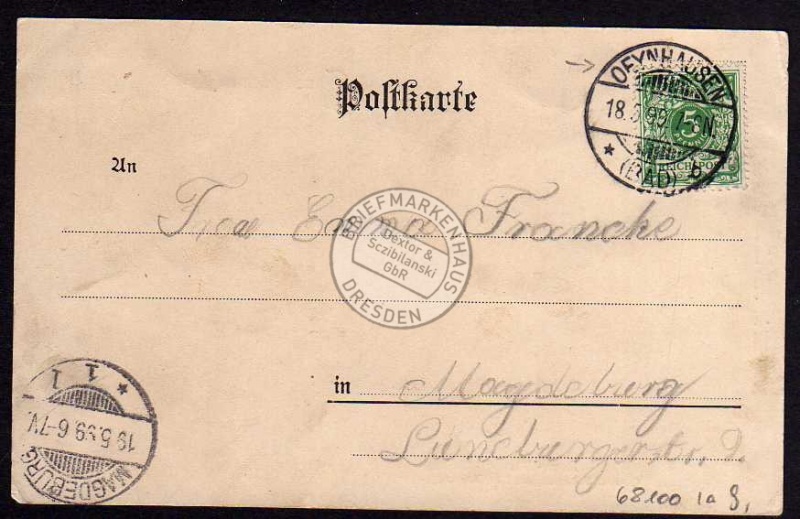 OEYNHAUSEN
18.5.99. 7-8N
* (BAD) b
5
REICHSPOST
Postkarte
An
Emma Francke
BRIEFMARKENHAUS
Dextor &
Sczibilanski
GbR
DRESDEN
in Magdeburg
Lüneburgerstr.
* 1 1
19.5.99.6-7V.
MAGDEBURG
68100 1a